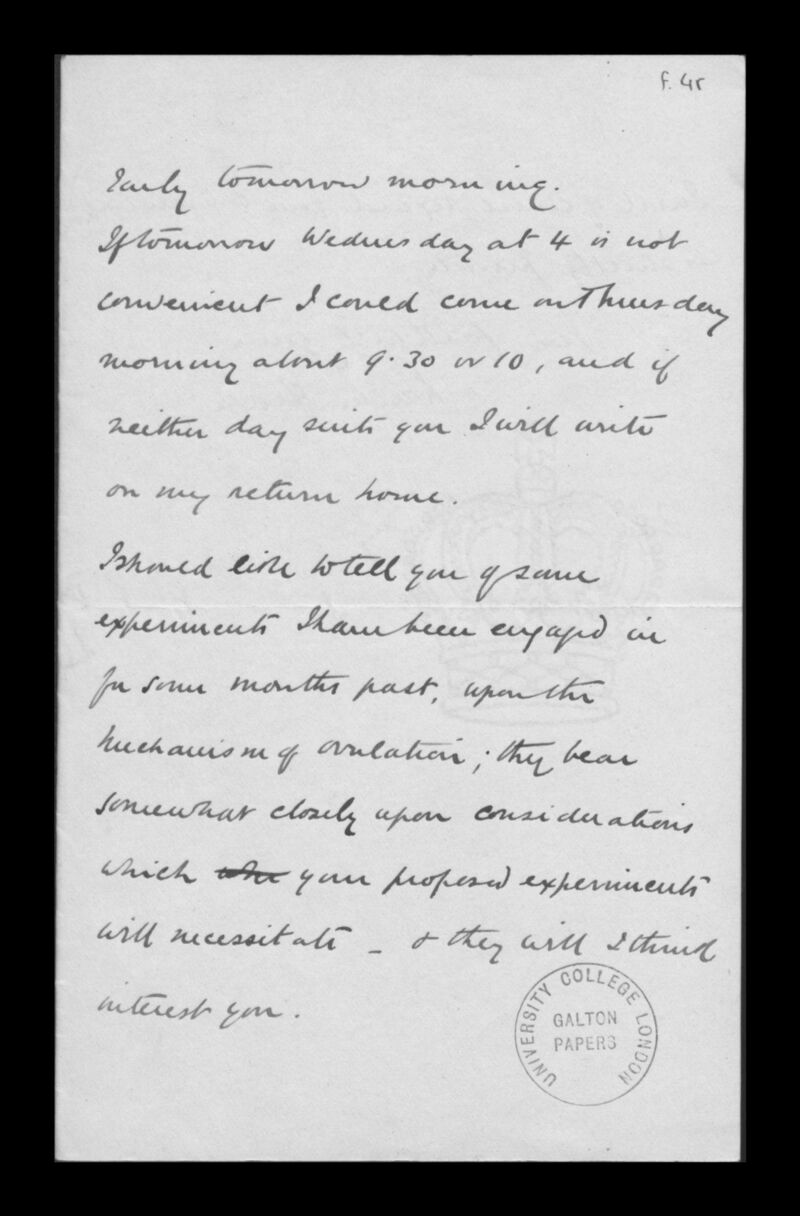 f. 4r
Early tomorrow morning.
If tomorrow Wednesday at 4 is not
convenient I could come on Thursday
morning about 9.30 or 10, and if
neither day suits you I will write
on my return home.
I should like to tell you of some
experiments I have been engaged in
for some months past, upon the
mechanism of ovulation; they bear
somewhat closely upon considerations
which your proposed experiments
will necessitate - & they will I think
interest you.
UNIVERSITY COLLEGE LONDON
GALTON
PAPERS